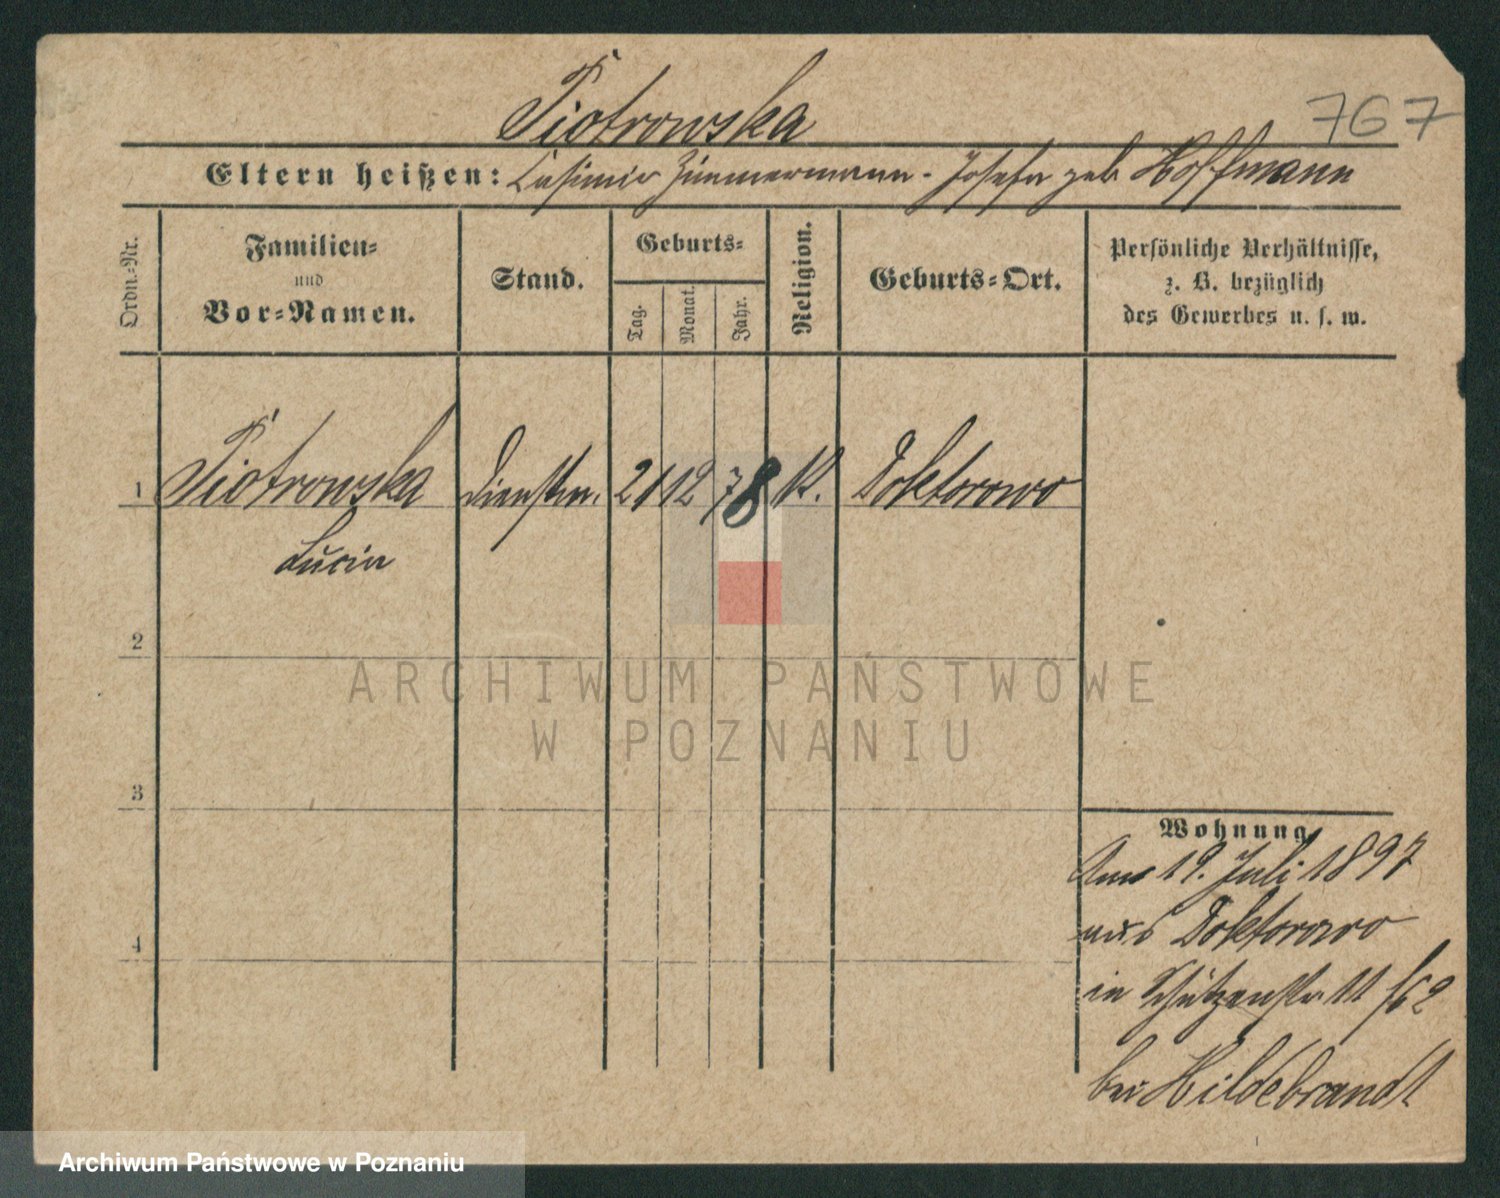 Piotrowska
767
Eltern heißen: Casimir Zimmermann - Josefa geb Hoffmann
Ordn.-Nr.
Familien-
und
Vor-Namen.
Stand.
Geburts-
Tag.
Monat.
Jahr.
Religion.
Geburts-Ort.
Persönliche Verhältnisse,
z. B. bezüglich
des Gewerbes u. s. w.
1 Piotrowska Dienstm. 21 12 78 K. Doktorowo
Lucia
2
3
4
Wohnung
Am 19. Juli 1897
aus Doktorowo
in Schützenstr 11
bei Hildebrandt
ARCHIWUM PAŃSTWOWE
W POZNANIU
Archiwum Państwowe w Poznaniu